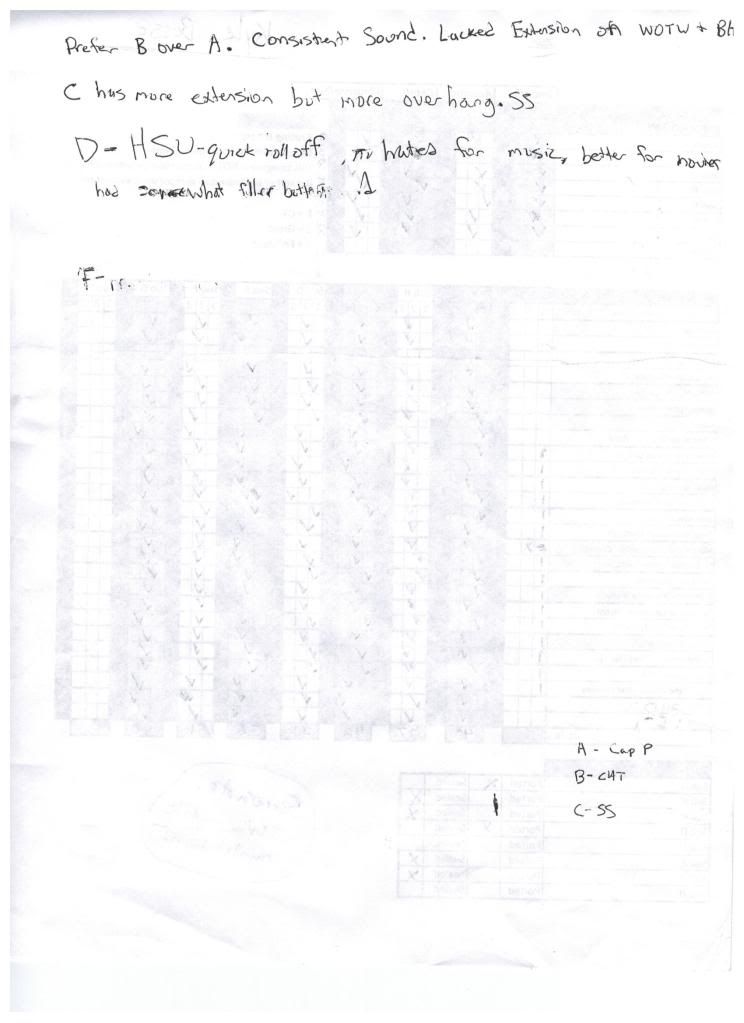 Prefer B over A. Consistent Sound. Lacked Extension on WOTW +
C has more extension but more overhang. SS
D - HSU - quick rolloff, hates for music, better for movies
had somewhat filler
F -
A - Cap P
B - CHT
C - SS